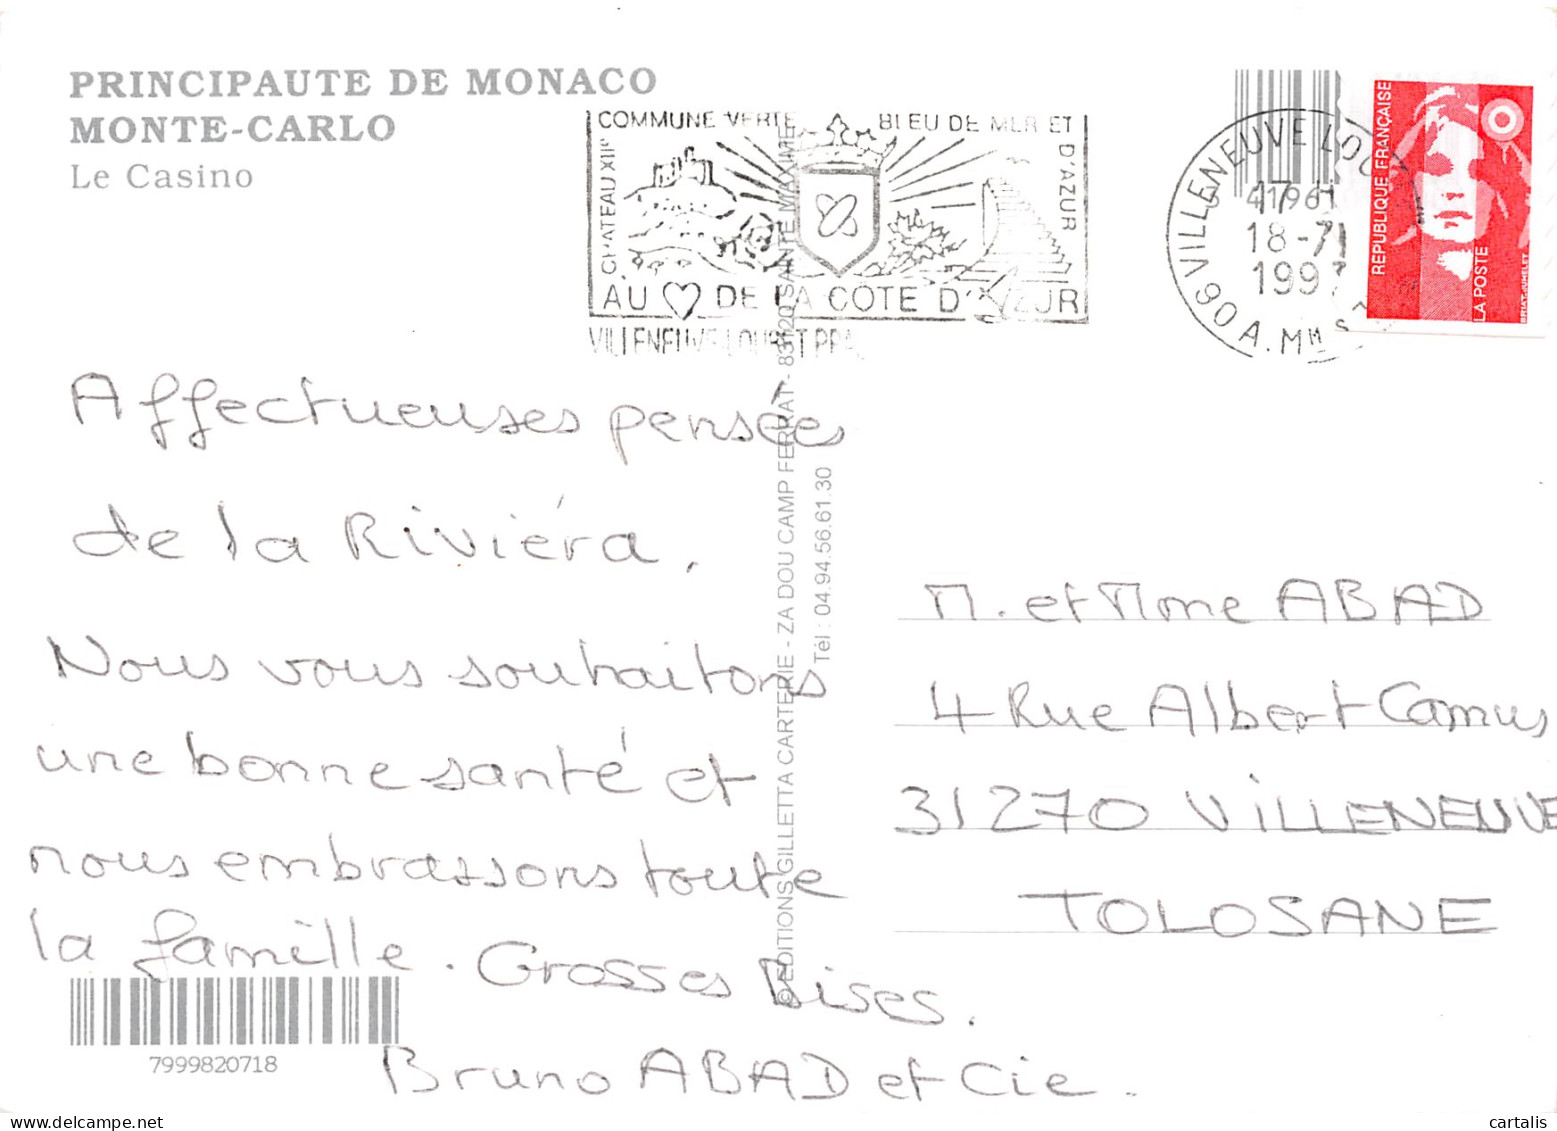 PRINCIPAUTE DE MONACO
MONTE-CARLO
Le Casino
COMMUNE VERTE BLEU DE MER ET
D'AZUR
CHATEAU XIIe
AU DE LA COTE D'AZUR
VILLENEUVE-LOUBET PPAL
VILLENEUVE LOU
17 H
18-7
1997
90 A.MMES
41961
REPUBLIQUE FRANÇAISE
LA POSTE
Affectueuses pensées
de la Riviéra,
Nous vous souhaitons
une bonne santé et
nous embrassons toute
la famille. Grosses Bises.
Bruno ABAD et Cie.
© EDITIONS GILLETTA CARTERIE - ZA DOU CAMP FERRAT - 83120 SAINTE MAXIME
Tél : 04.94.56.61.30
M. et Mme ABAD
4 Rue Albert Camus
31270 VILLENEUVE
TOLOSANE
7999820718
cartalis